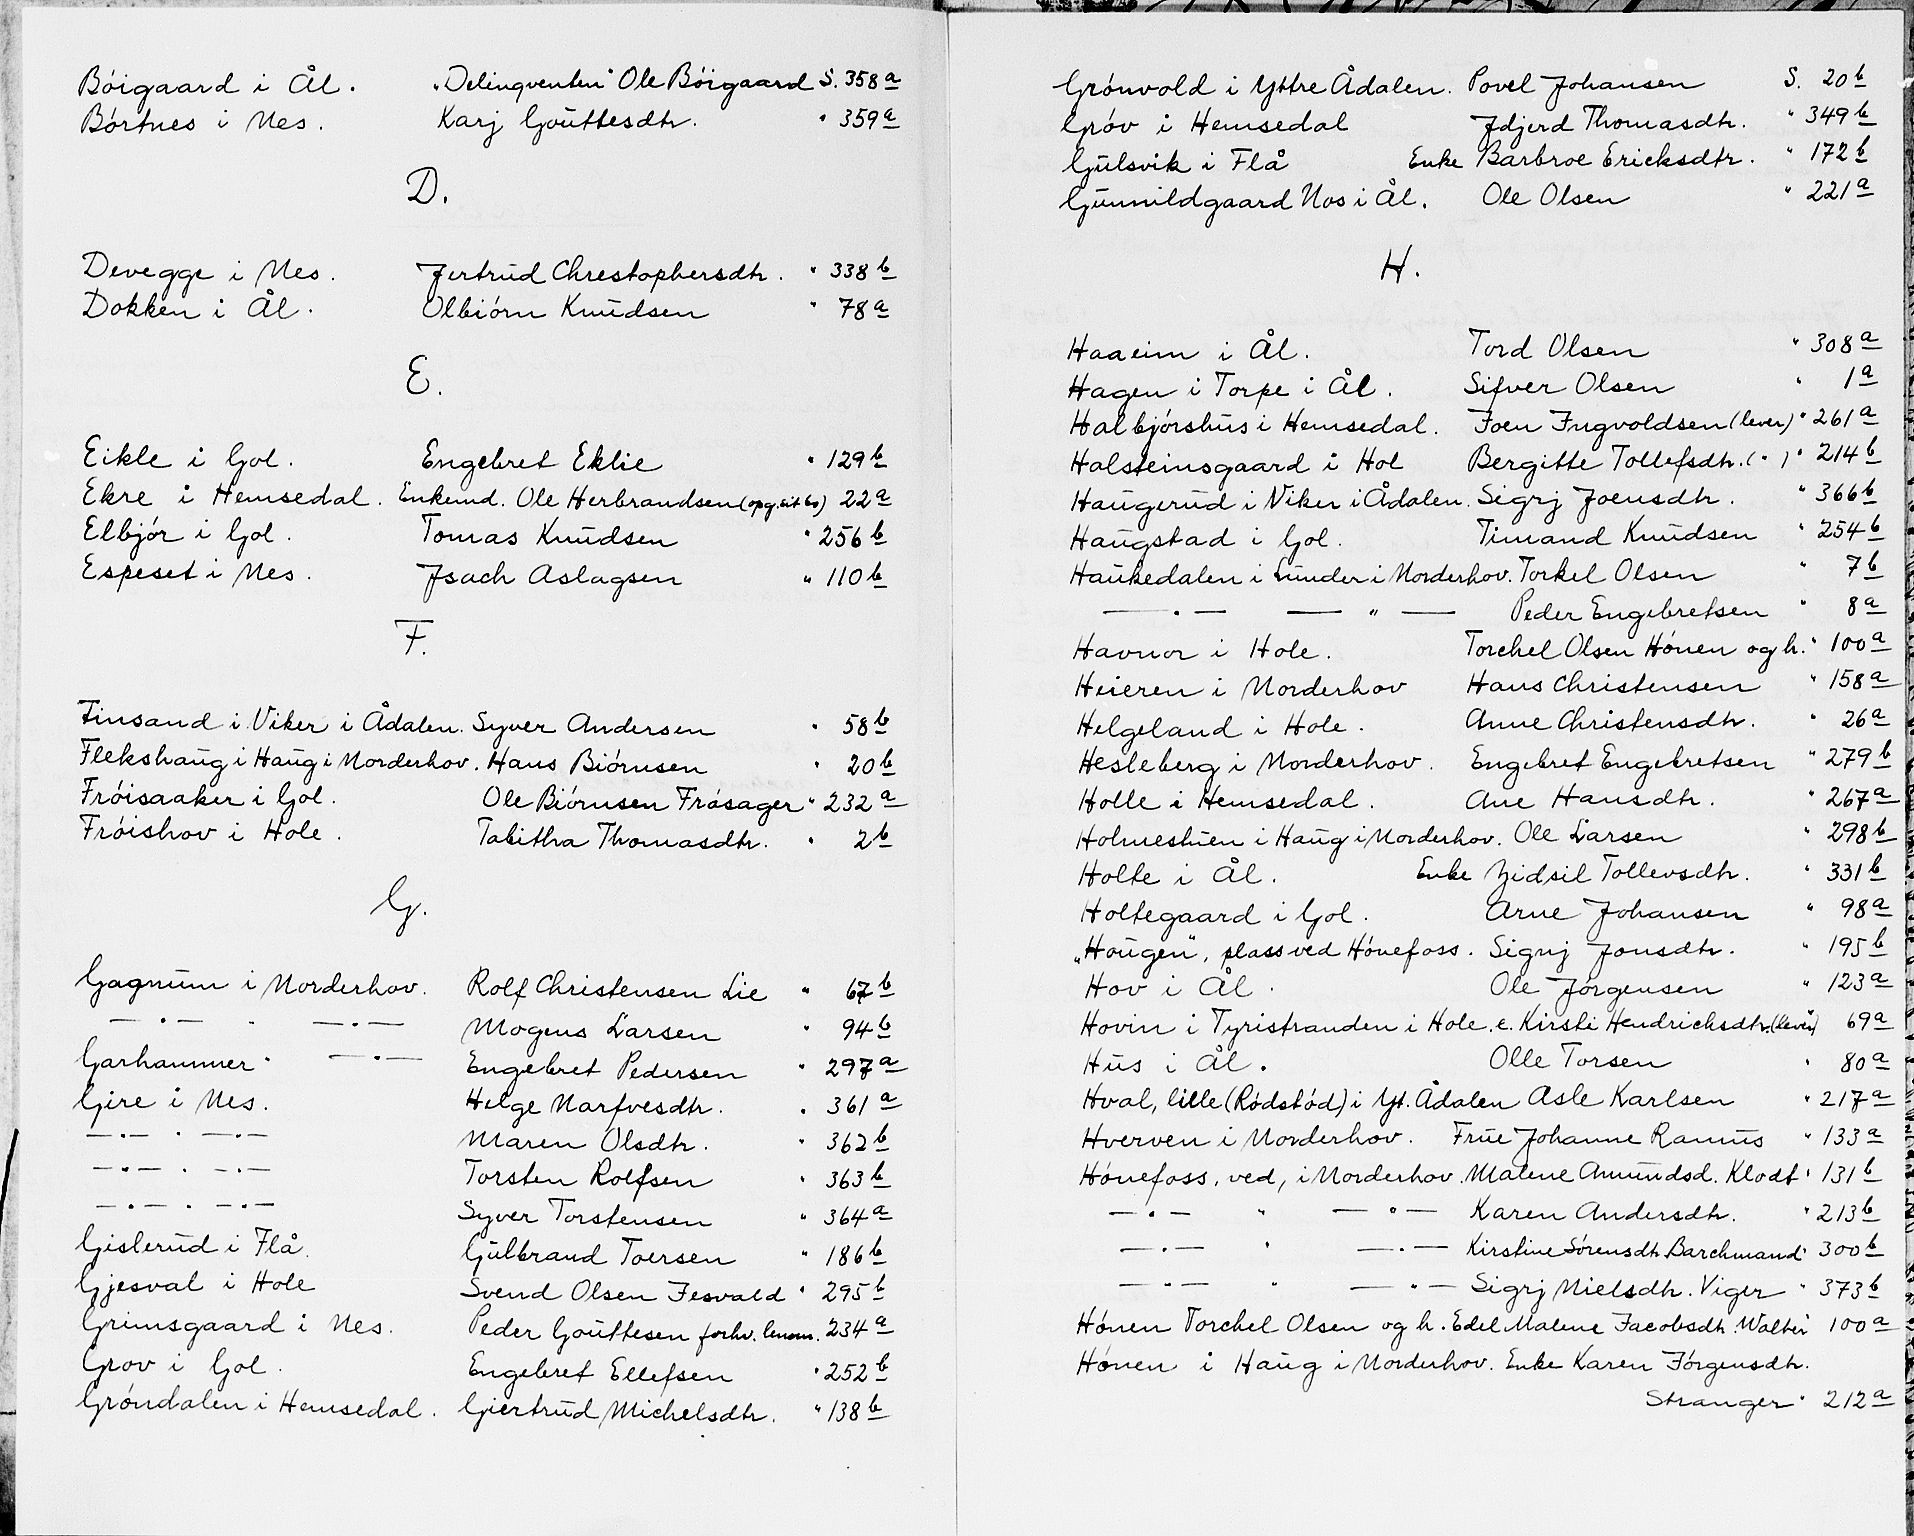 Bóigaard i Ål. „Delinqventen" Ole Bóigaard S. 358 a
Bórtnes i Nes. Karj Gouttesdtr. " 359 a
D.
Devegge i Nes. Jertrud Chrestophersdtr. " 338 b
Dokken i Ål. Olbiórn Knudsen " 78 a
E.
Eikle i Gol. Engebret Eklie " 129 b
Ekre i Hemsedal. Enkemd. Ole Herbrandsen (opg. sit bo) 22 a
Elbjór i Gol. Tomas Knudsen " 256 b
Espeset i Nes. Jsach Aslagsen " 110 b
F.
Finsand i Viker i Ådalen. Syver Andersen " 58 b
Flekshaug i Haug i Norderhov. Hans Biórnsen " 20 b
Fróisaaker i Gol. Ole Biórnsen Frósager " 232 a
Fróishov i Hole. Tabitha Thomasdtr. " 2 b
G.
Gagnum i Norderhov. Rolf Christensen Lie " 67 b
— " — " — " — Mogens Larsen " 94 b
Garhammer " — " — Engebret Pedersen " 297 a
Gire i Nes. Helge Narfvesdtr. " 361 a
— " — " — " — Maren Olsdtr. " 362 b
— " — " — " — Torsten Rolfsen " 363 b
— " — " — " — Syver Torstensen " 364 a
Gislerud i Flå. Gulbrand Toersen " 186 b
Gjesval i Hole Svend Olsen Jesvald " 295 b
Grimsgaard i Nes. Peder Gouttesen forhv. lensm. 234 a
Grov i Gol. Engebret Ellefsen " 252 b
Gróndalen i Hemsedal. Giertrud Michelsdtr. " 138 b
Grónvold i Yttre Ådalen. Povel Johansen S. 20 b
Gróv i Hemsedal Jdjerd Thomasdtr. " 349 b
Gulsvik i Flå Enke Barbroe Ericksdtr. " 172 b
Gunnildgaard Nos i Ål. Ole Olsen " 221 a
H.
Haaeim i Ål. Tord Olsen " 308 a
Hagen i Torpe i Ål. Sifver Olsen " 1 a
Halbjórshus i Hemsedal. Joen Jngvoldsen (lever) " 261 a
Halsteinsgaard i Hol Bergitte Tollefsdtr. ( " ) " 214 b
Haugerud i Viker i Ådalen. Sigrj Joensdtr. " 366 b
Haugstad i Gol. Timand Knudsen " 254 b
Haukedalen i Lunder i Norderhov. Torkel Olsen " 7 b
— " — — " — Peder Engebretsen " 8 a
Havnor i Hole. Torchel Olsen Hónen og h. " 100 a
Heieren i Norderhov Hans Christensen " 158 a
Helgeland i Hole. Anne Christensdtr. " 26 a
Hesleberg i Norderhov. Engebret Engebretsen " 279 b
Holle i Hemsedal. Ane Hansdtr. " 267 a
Holmestuen i Haug i Norderhov. Ole Larsen " 298 b
Holte i Ål. Enke Zidsil Tollevsdtr. " 331 b
Holtegaard i Gol. Arne Johansen " 98 a
„Hougen", plass ved Hónefoss. Sigrj Jonsdtr. " 195 b
Hov i Ål. Ole Jórgensen " 123 a
Hovin i Tyristranden i Hole. e. Kirsti Hendrichsdtr. (lever) 69 a
Hus i Ål. Olle Torsen " 80 a
Hval, lille (Ródstód) i Yt. Ådalen Asle Karlsen " 217 a
Hverven i Norderhov. Frue Johanne Ramus " 133 a
Hónefoss, ved, i Norderhov. Malene Amundsd. Klodt " 131 b
— " — " — " — Karen Andersdtr. " 213 b
— " — " — " — Kirstine Sórensdtr. Barchmand " 300 b
— " — " — " — Sigrj Nielsdtr. Viger " 373 b
Hónen Torchel Olsen og h. Edel Malene Jacobsdtr. Walter 100 a
Hónen i Haug i Norderhov. Enke Karen Jórgensdtr.
Stranger " 212 a